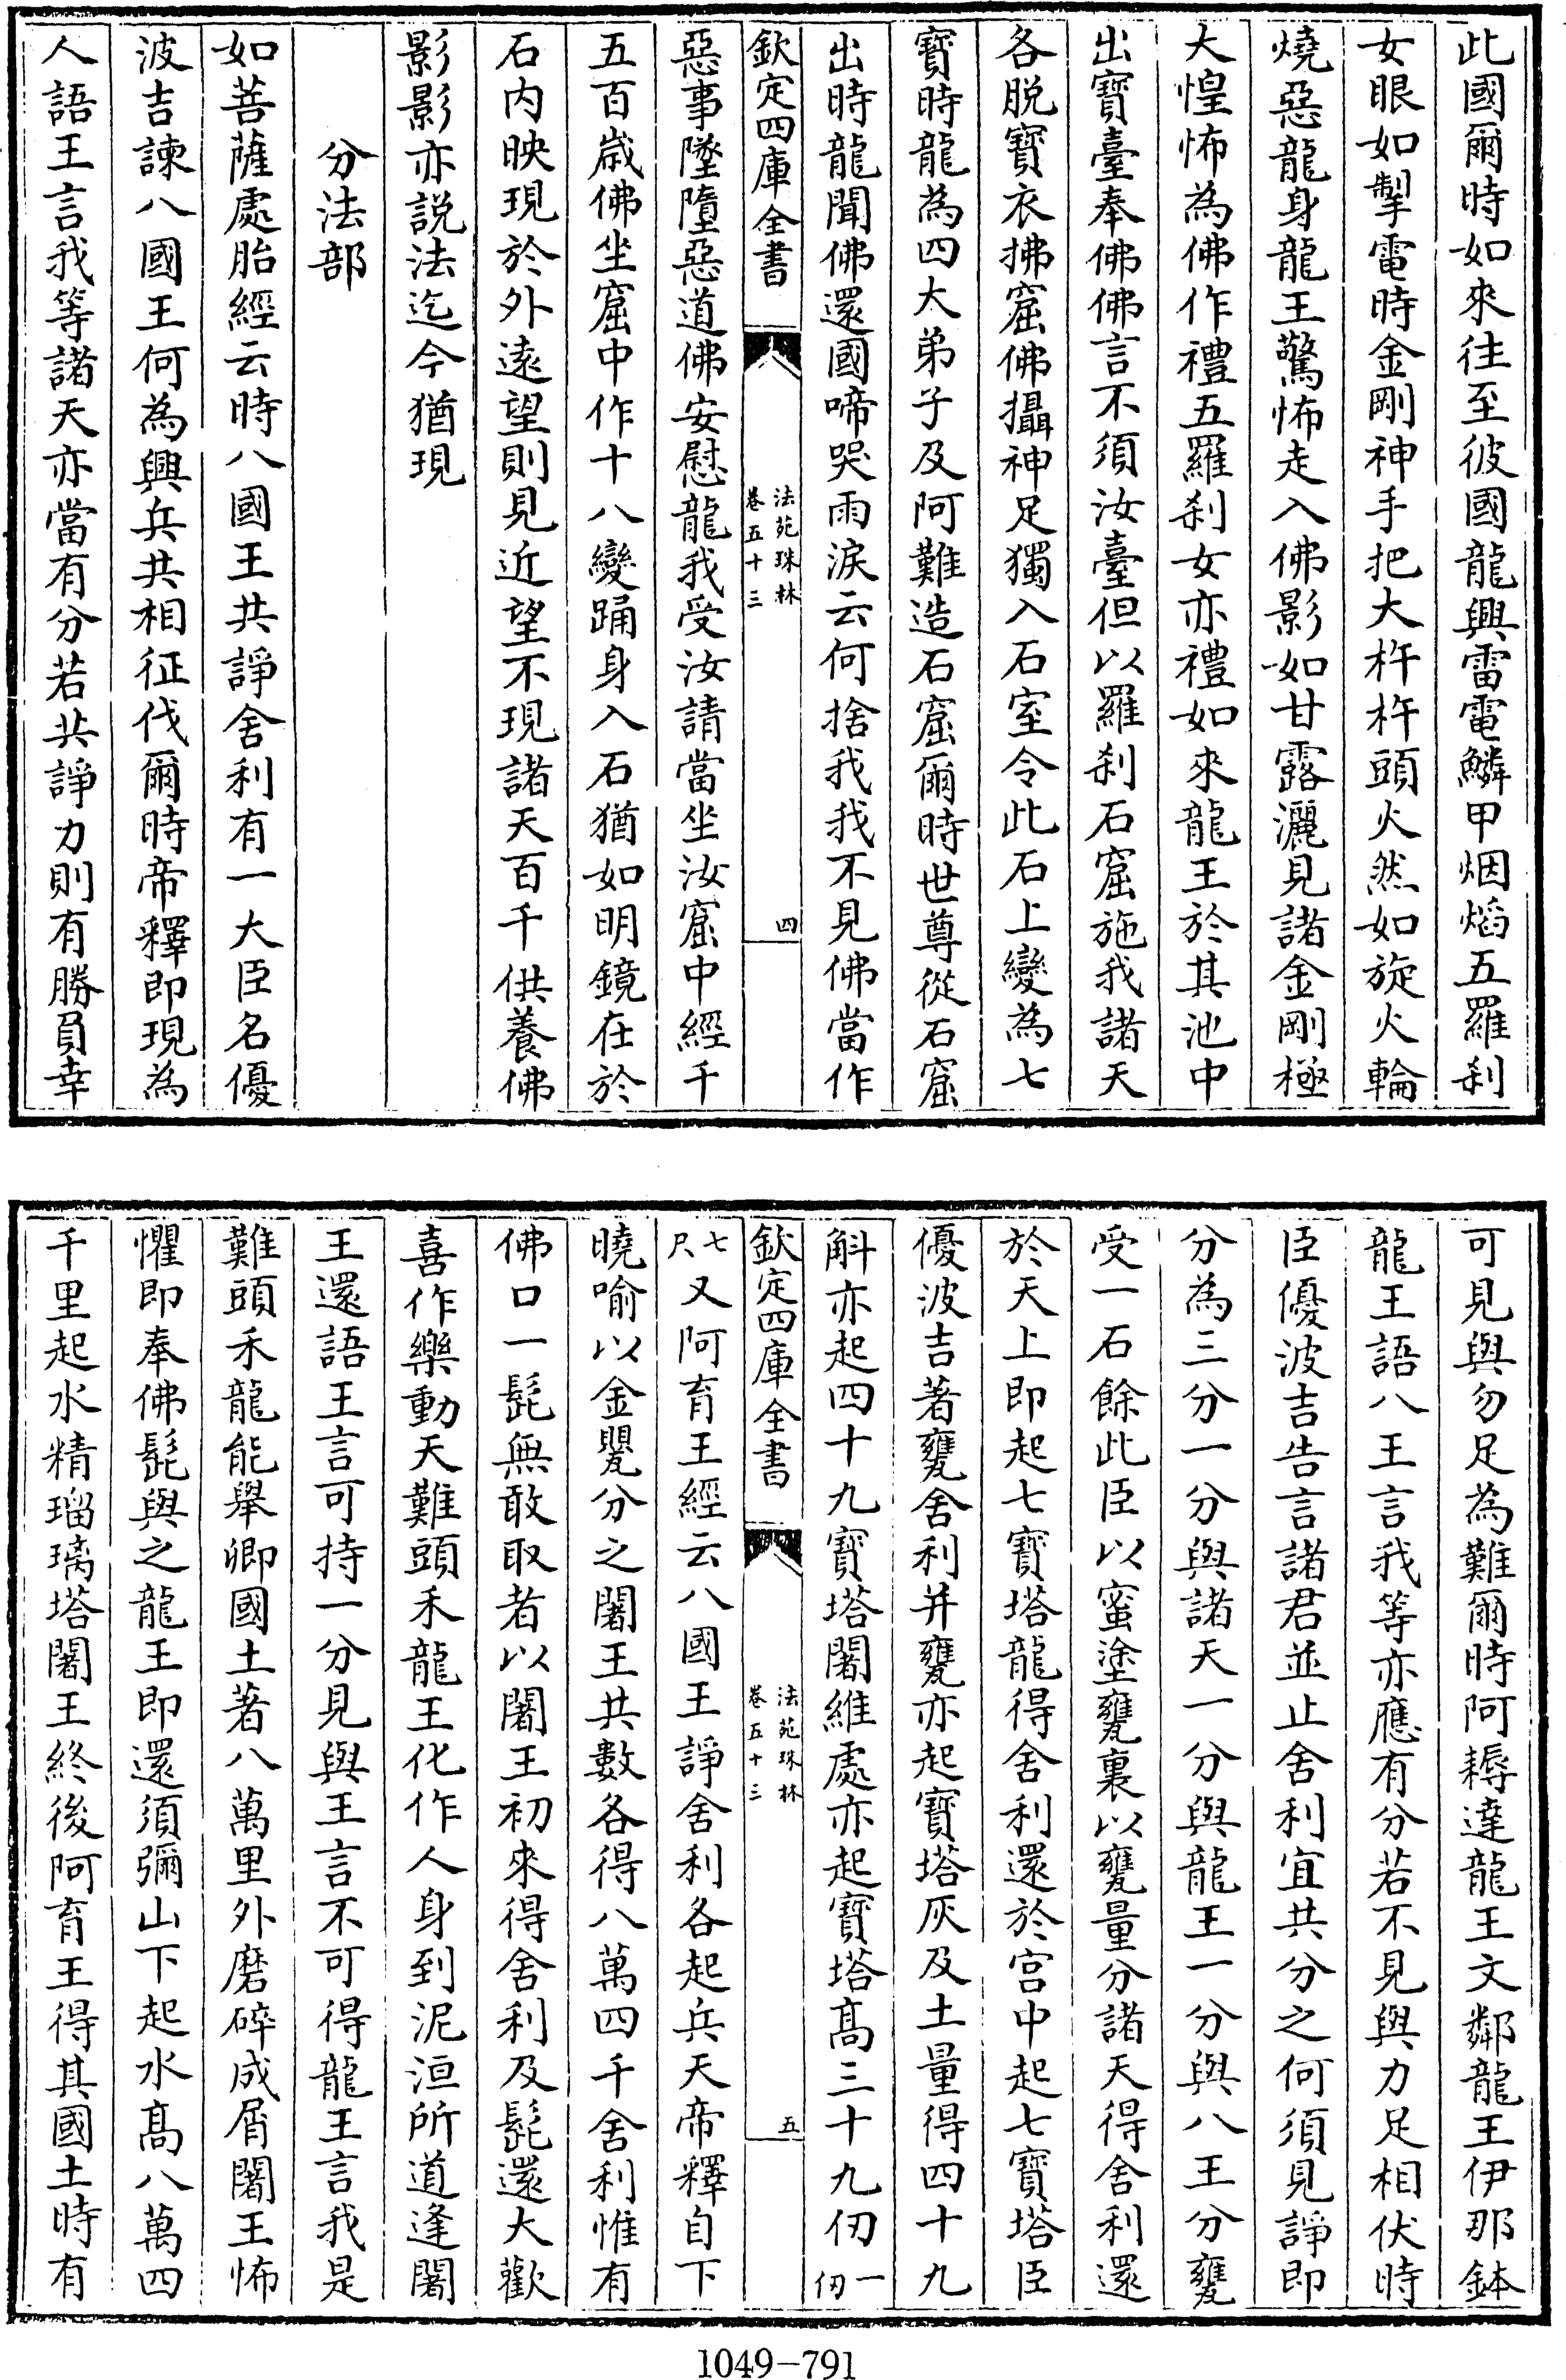 此國爾時如來往至彼國龍興雷電鱗甲烟焰五羅刹
女眼如掣電時金剛神手把大杵杵頭火然如旋火輪
燒惡龍身龍王驚怖走入佛影如甘露灑見諸金剛極
大惶怖為佛作禮五羅刹女亦禮如來龍王於其池中
出寶臺奉佛佛言不須汝臺但以羅刹石窟施我諸天
各脱寶衣拂窟佛攝神足獨入石室令此石上變為七
寶時龍為四大弟子及阿難造石窟爾時世尊從石窟
出時龍聞佛還國啼哭雨淚云何捨我我不見佛當作
欽定四庫全書
法苑珠林
卷五十三
四
惡事墜墮惡道佛安慰龍我受汝請當坐汝窟中經千
五百歳佛坐窟中作十八變踊身入石猶如明鏡在於
石内映現於外遠望則見近望不現諸天百千供養佛
影影亦説法迄今猶現
分法部
如菩薩處胎經云時八國王共諍舍利有一大臣名優
波吉諫八國王何為興兵共相征伐爾時帝釋即現為
人語王言我等諸天亦當有分若共諍力則有勝負幸
可見與勿足為難爾時阿耨達龍王文鄰龍王伊那鉢
龍王語八王言我等亦應有分若不見與力足相伏時
臣優波吉告言諸君並止舍利宜共分之何須見諍即
分為三分一分與諸天一分與龍王一分與八王分甕
受一石餘此臣以蜜塗甕裏以甕量分諸天得舍利還
於天上即起七寶塔龍得舍利還於宫中起七寶塔臣
優波吉著甕舍利并甕亦起寶塔灰及土量得四十九
斛亦起四十九寶塔闍維處亦起寶塔髙三十九仞一仞
欽定四庫全書
法苑珠林
卷五十三
五
七尺又阿育王經云八國王諍舍利各起兵天帝釋自下
曉喻以金甖分之闍王共數各得八萬四千舍利惟有
佛口一髭無敢取者以闍王初來得舍利及髭還大歡
喜作樂動天難頭禾龍王化作人身到泥洹所道逢闍
王還語王言可持一分見與王言不可得龍王言我是
難頭禾龍能舉卿國土著八萬里外磨碎成屑闍王怖
懼即奉佛髭與之龍王即還須彌山下起水髙八萬四
千里起水精瑠璃塔闍王終後阿育王得其國土時有
1049-791